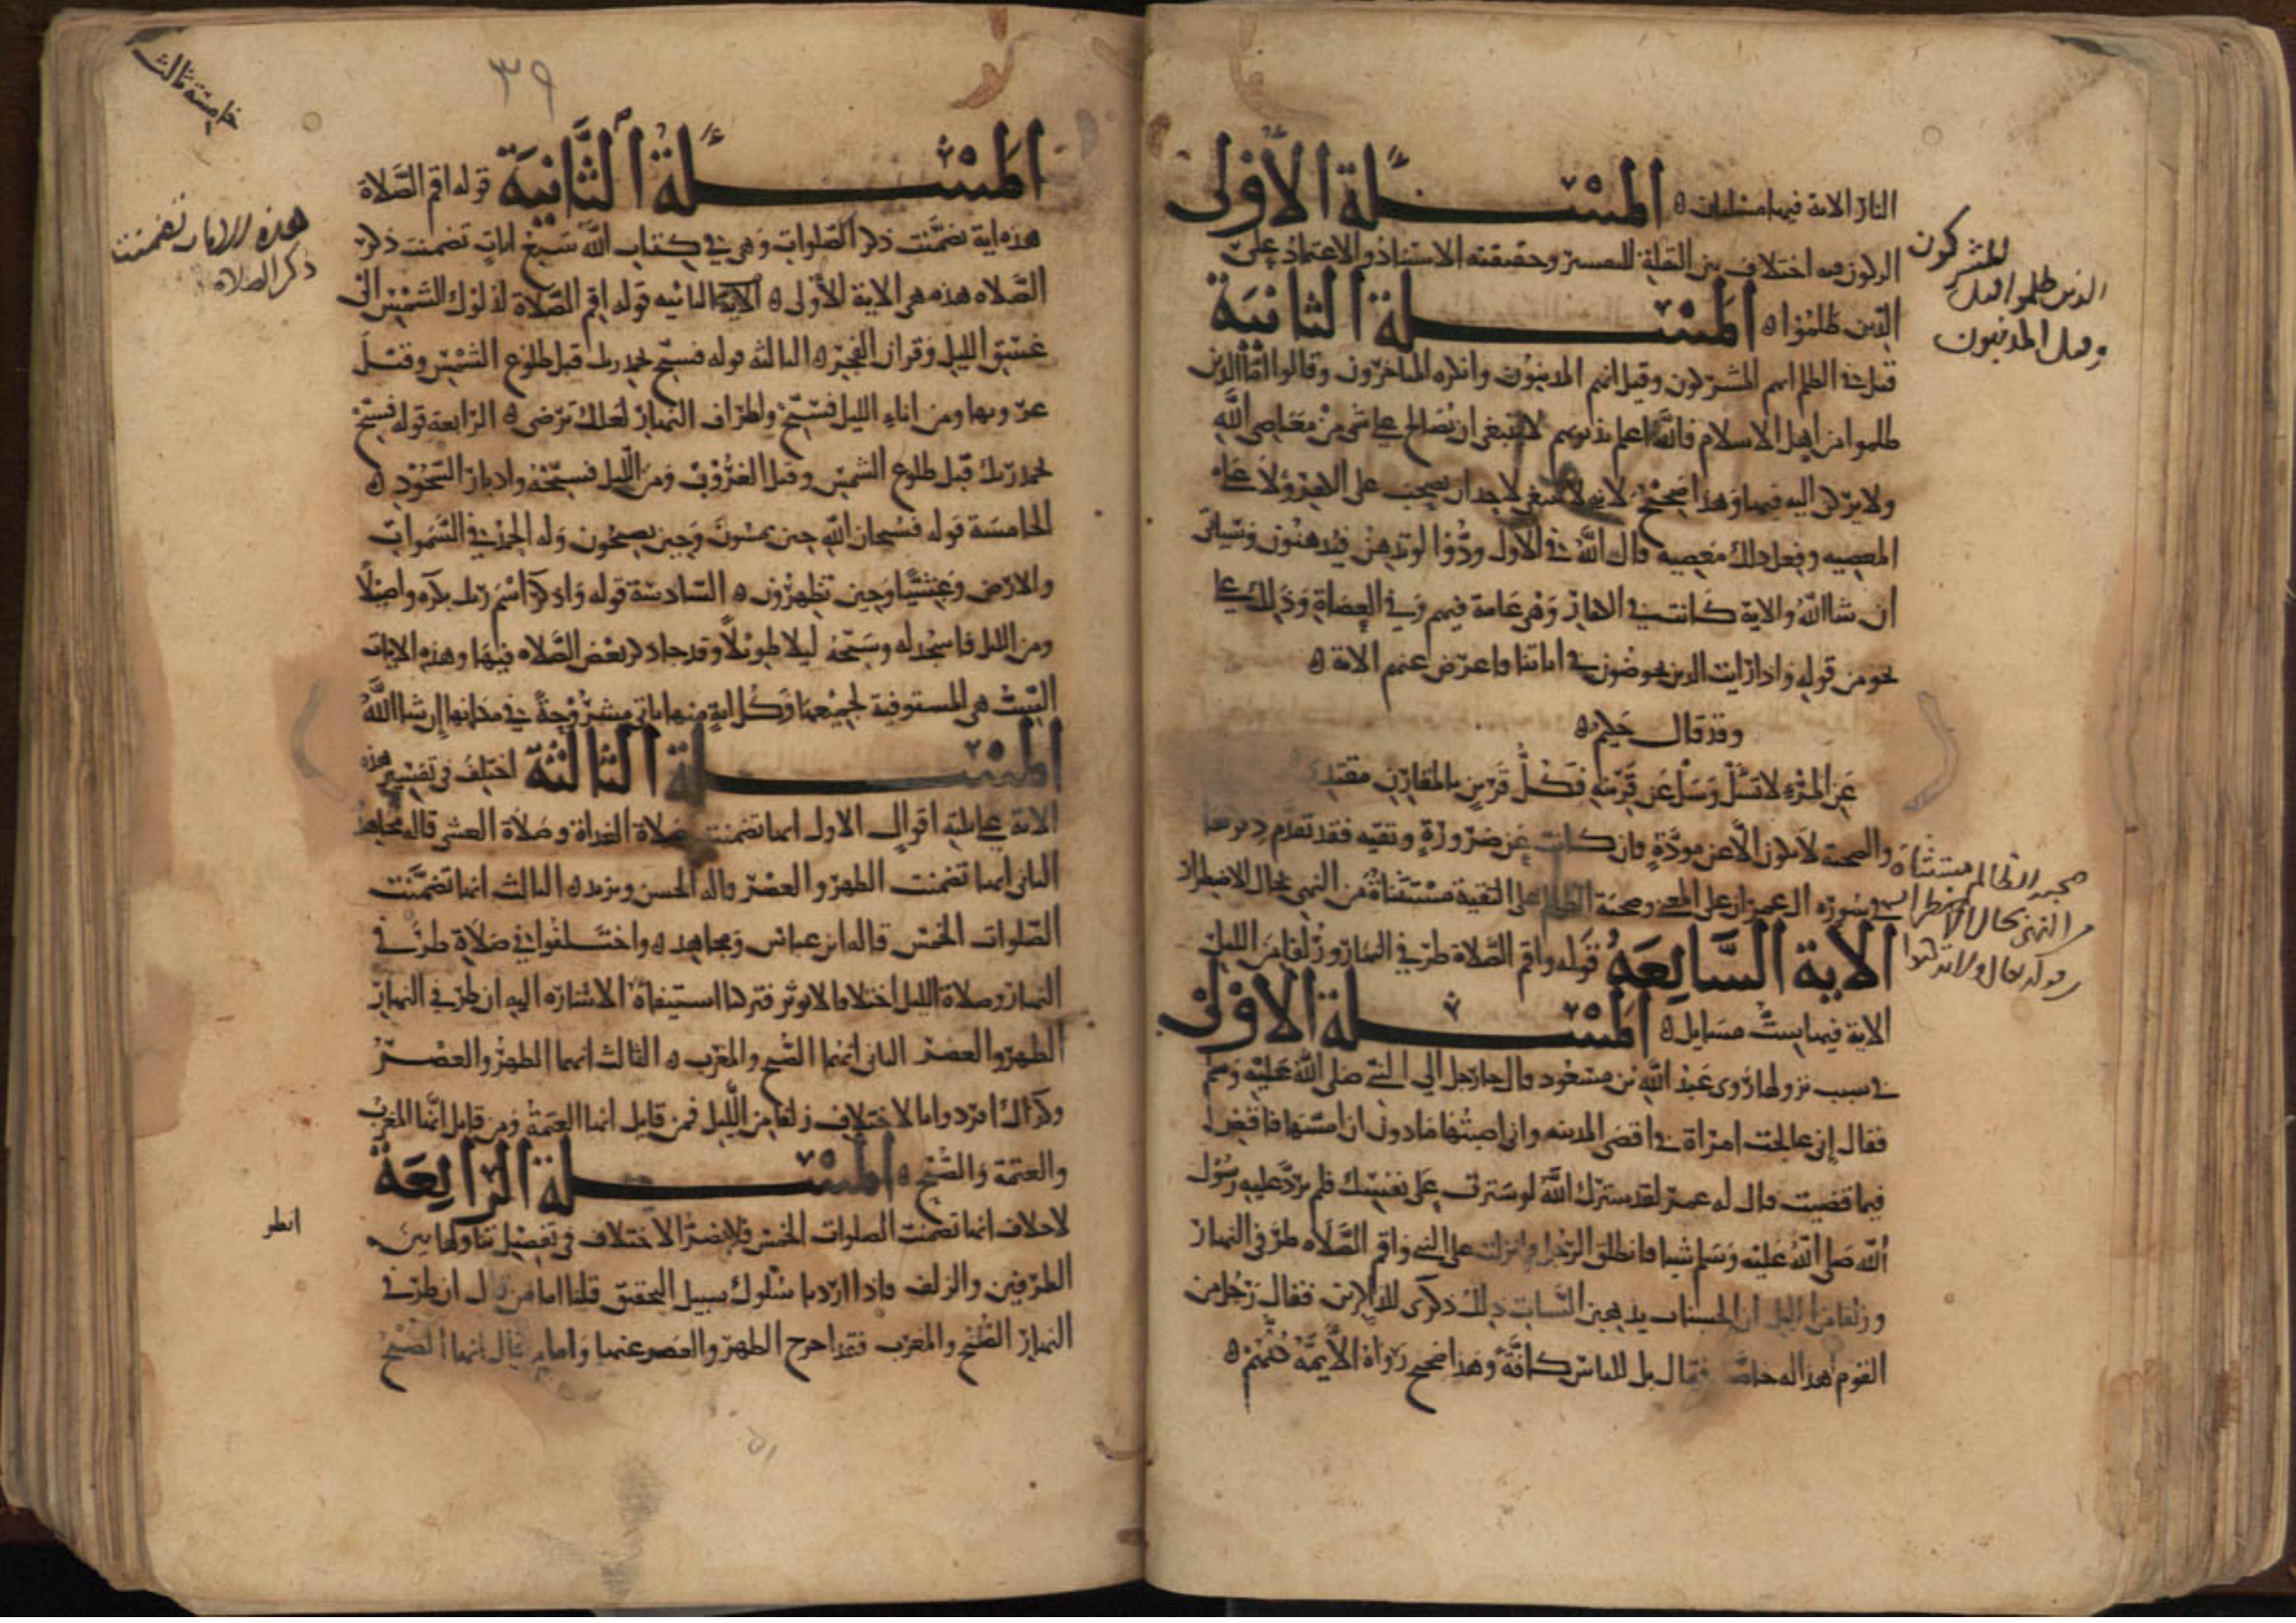 النار الاية فيها مسئلتان ه المسئلة الأولى
الركون فيه اختلاف بين النقلة للتفسير وحقيقته الاستناد والاعتماد على
الذين ظلموا ه المسئلة الثانية
قيل في الظلم انهم المشركون وقيل انهم المذنبون وانكره المتاخرون وقالوا اما الذين
ظلموا من اهل الاسلام فالله اعلم بذنوبهم لا ينبغي ان يصالح على شي من معاصي الله
ولا يركن اليه فيها وهذا صحيح لانه لا ينبغي لاحد ان يصحب على الكفر ولا على
المعصيه وفعل ذلك معصيه قال الله في الاول ودوا لو تدهن فيدهنون وسياتي
ان شا الله والاية كانت في الكفار وهي عامة فيهم وفي العصاة وذلك على
نحو من قوله واذا رايت الذين يخوضون في اياتنا فاعرض عنهم الاية ه
وقد قال حكيم ه
عن المرء لا تسئل وسل عن قرينه فكل قرين بالمقارن مقتد
والصحبة لا تكون الا عن مودة فان كانت عن ضرورة وتقيه فقد تقدم ذكرها
في سورة ال عمران على المعنى وصحبة الظالم على التقية مستثناة من النهي بحال الاضطرار
الاية السابعة قوله واقم الصلاة طرفي النهار وزلفا من الليل
الاية فيها ست مسايل ه المسئلة الاولى
في سبب نزولها روى عبد الله بن مسعود قال جا رجل الى النبي صلى الله عليه وسلم
فقال اني عالجت امراة في اقصى المدينه واني اصبت منها ما دون ان امسها فاقض
فيما قضيت قال له عمر لقد سترك الله لو سترت على نفسك فلم يرد عليه رسول
الله صلى الله عليه وسلم شيا فانطلق الرجل فانزلت على النبي واقم الصلاه طرفي النهار
وزلفا من الليل ان الحسنات يذهبن السيات ذلك ذكرى للذاكرين فقال رجل من
القوم هذا له خاصة فقال بل للناس كافة وهذا صحيح رواه الايمة كلهم ه
المشركون
الذين ظلموا قيل
وقيل المذنبون
صحبة الظالم مستثناة
النهي بحال الاضطرار
ولا تركنوا
٣٩
خامسة ثالث
المسئلة الثانية قوله اقم الصلاة
هذه اية تضمنت ذكر الصلوات وهي في كتاب الله سبع ايات تضمنت ذكر
الصلاه هذه هي الاية الأولى ه الاية الثانيه قوله اقم الصلاة لدلوك الشمس الى
غسق الليل وقران الفجر ه الثالثه قوله فسبح بحمد ربك قبل طلوع الشمس وقبل
غروبها ومن اناء الليل فسبح واطراف النهار لعلك ترضى ه الرابعة قوله فسبح
بحمد ربك قبل طلوع الشمس وقبل الغروب ومن الليل فسبحه وادبار السجود ه
الخامسة قوله فسبحان الله حين تمسون وحين تصبحون وله الحمد في السموات
والارض وعشيا وحين تظهرون ه السادسة قوله واذكر اسم ربك بكره واصيلا
ومن الليل فاسجد له وسبحه ليلا طويلا وقد جا ذكر بعض الصلاه فيها وهذه الايات
الست هي المستوفية لجميعها وكل اية منها تاتي مشروحة في مكانها ان شا الله
المسئلة الثالثة اختلف في تفسير هذه
الاية على ثلثه اقوال الاول انها تضمنت صلاة الغداة وصلاة العشي قاله مجاهد
الثاني انها تضمنت الظهر والعصر قاله الحسن وبن زيد ه الثالث انها تضمنت
الصلوات الخمس قاله ابن عباس ومجاهد ه واختلفوا في صلاة طرفي
النهار وصلاة الليل اختلافا لا يوثر فتركنا استيفاه الاشارة اليه ان طرفي النهار
الظهر والعصر الثاني انهما الصبح والمغرب ه الثالث انهما الظهر والعصر
وكذلك افردوا بالاختلاف زلفا من الليل فمن قايل انها العتمة ومن قايل انها المغرب
والعتمة والصبح ه المسئلة الرابعة
لا خلاف انها تضمنت الصلوات الخمس فلا يضر الاختلاف في تفصيل تناولها بين
الطرفين والزلف فاذا اردنا سلوك سبيل التحقيق قلنا اما من قال ان طرفي
النهار الصبح والمغرب فقد اخرج الظهر والعصر عنها واما من قال انها الصبح
هذه الايات تضمنت
ذكر الصلاة
انظر